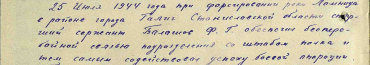 25 июля 1944 года при форсировании реки Ломница
в районе города Галич Станиславской области стар-
ший сержант Балашов Ф. Г. обеспечил беспере-
бойной связью подразделения со штабом полка и
тем самым содействовал успеху боевой операции.